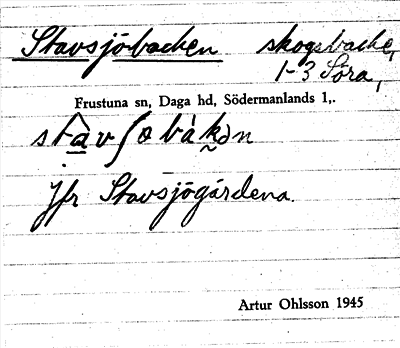 Stavsjöbacken skogsbacke,
1-3 Söra,
Frustuna sn, Daga hd, Södermanlands l,.
Jfr Stavsjögärdena.
Artur Ohlsson 1945